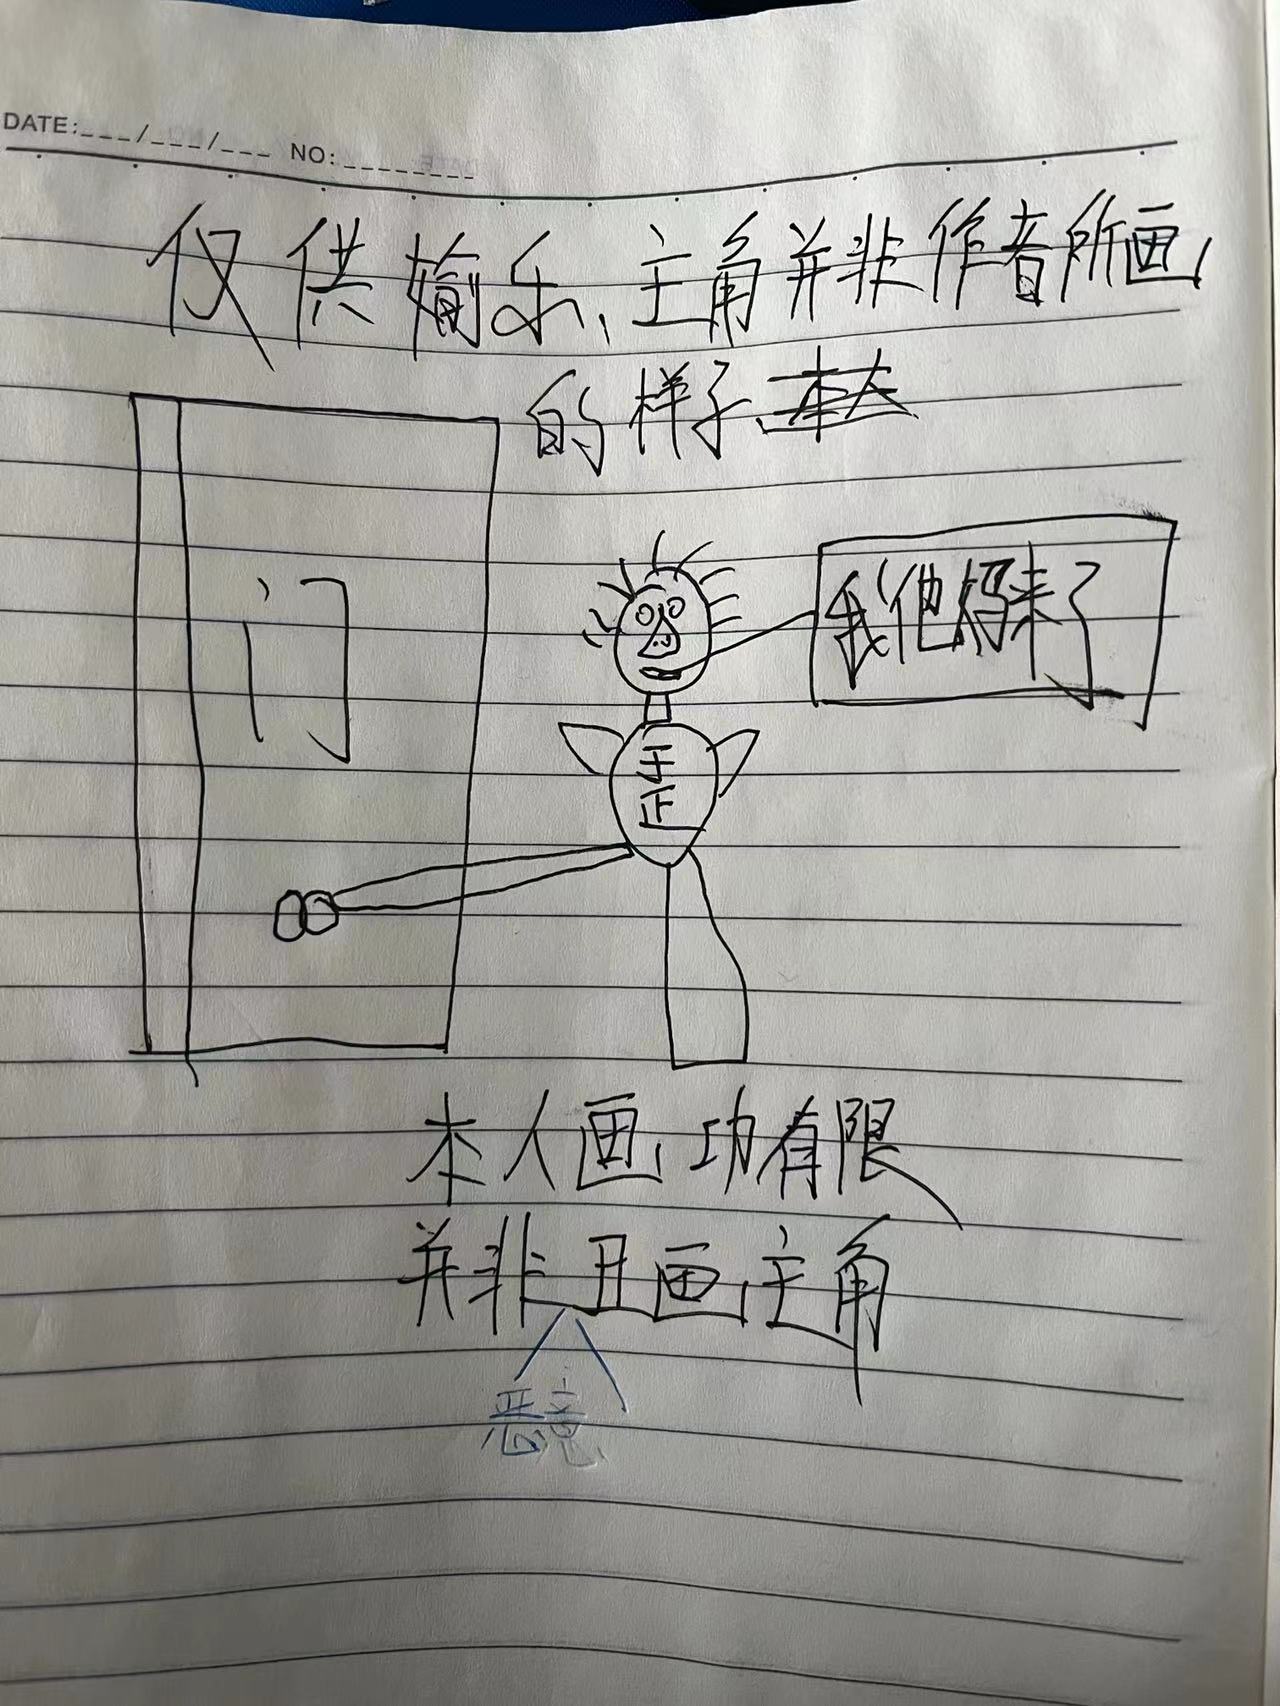 DATE:___/___/___ NO:________
仅供娱乐、主角并非作者所画
的样子、本人
门
我他妈来了
于
正
本人画功有限
并非丑画主角
恶意